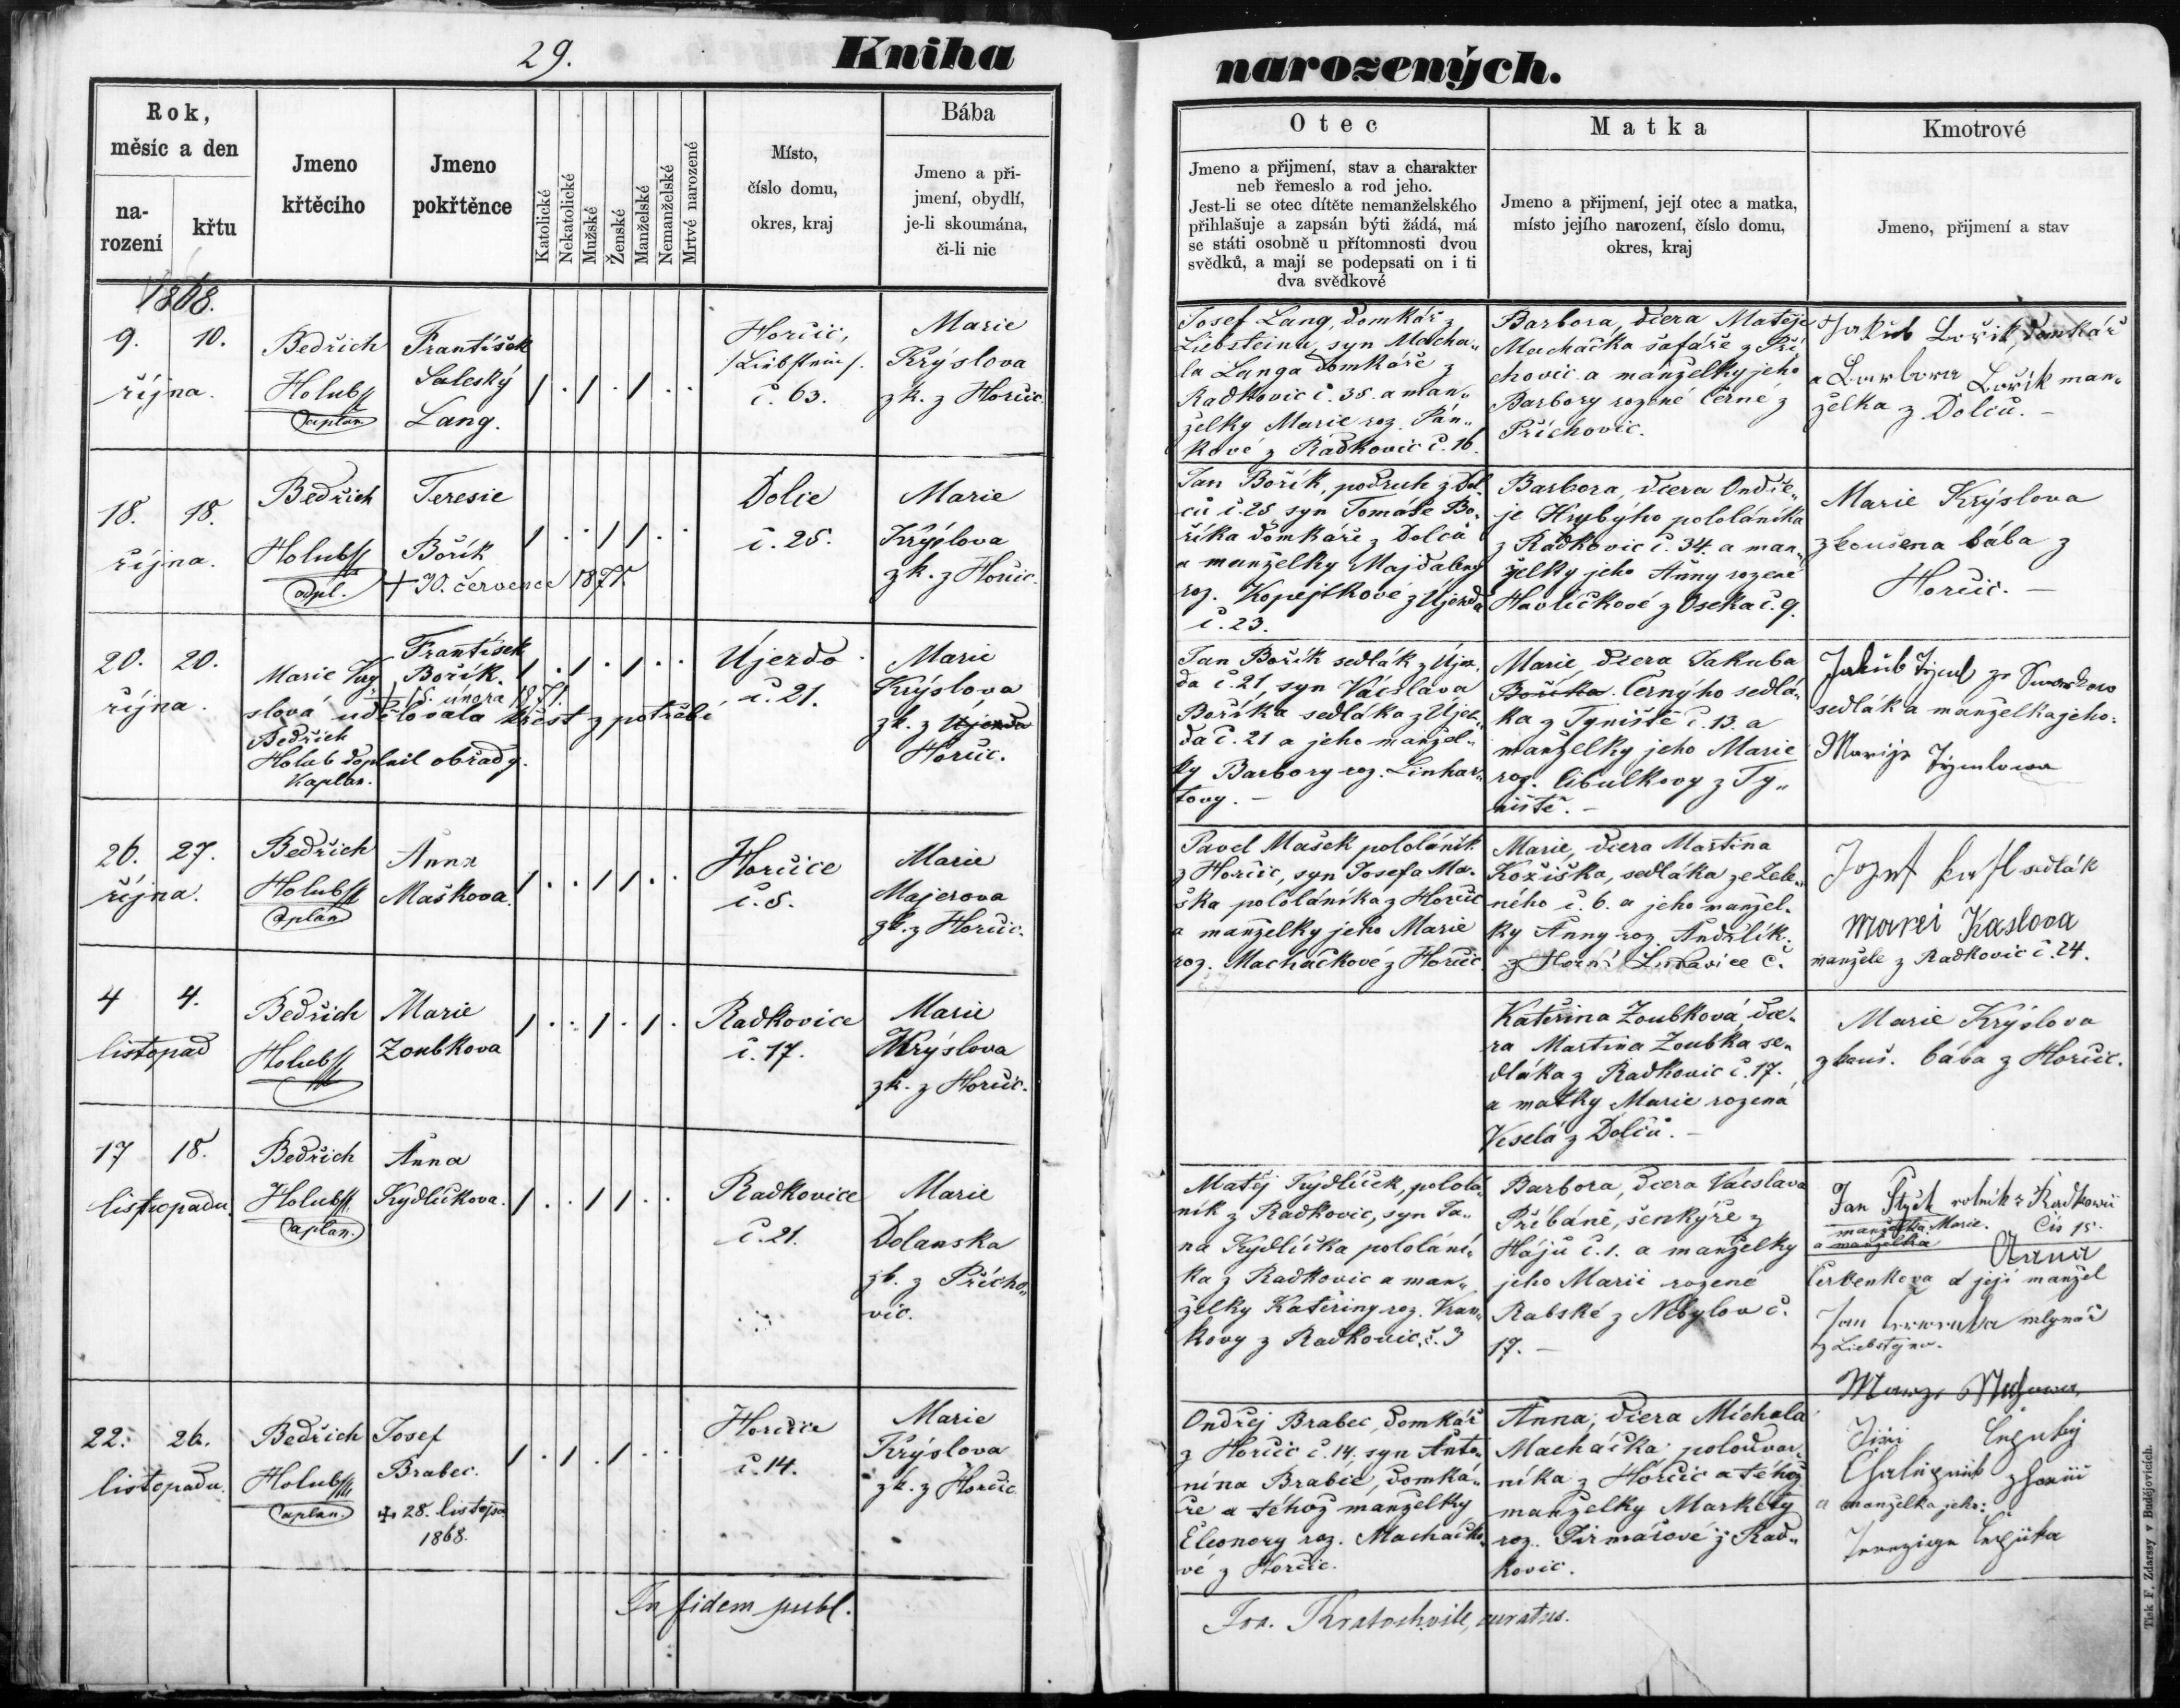 29.
Kniha narozených.
Rok,
měsíc a den
na-
rození
křtu
Jmeno
křtěcího
Jmeno
pokřtěnce
Katolické
Nekatolické
Mužské
Ženské
Manželské
Nemanželské
Mrtvé narozené
Místo,
číslo domu,
okres, kraj
Bába
Jmeno a při-
jmení, obydlí,
je-li skoumána,
či-li nic
Otec
Jmeno a přijmení, stav a charakter
neb řemeslo a rod jeho.
Jest-li se otec dítěte nemanželského
přihlašuje a zapsán býti žádá, má
se státi osobně u přítomnosti dvou
svědků, a mají se podepsati on i ti
dva svědkové
Matka
Jmeno a přijmení, její otec a matka,
místo jejího narození, číslo domu,
okres, kraj
Kmotrové
Jmeno, přijmení a stav
1868.
9. 10.
října.
Bedřich
Holub
Caplan
František
Saleský
Lang.
Horčic,
/Libstein/.
č. 63.
Marie
Krýslova
zk. z Horčic.
Josef Lang, domkář z
Liebsteinu, syn Macha„
la Langa domkáře z
Radkovic č. 35. a man„
želky Marie roz. Pán„
kové z Radkovic č. 16.
Barbora, dcera Matěje
Macháčka šafáře z Pří
chovic a manželky jeho
Barbory rozené Černé z
Příchovic.
Jakub Bořik, domkář
a Barbora Bořík man„
želka z Dolců. –
18. 18.
října.
Bedřich
Holub
capl.
Teresie
Bořík
+ 30. července 1871.
Dolce
č. 25.
Marie
Krýslova
zk. z Horčic.
Jan Bořík, podruh z Dol-
ců č. 25 syn Tomáše Bo-
říka domkáře z Dolců
a manželky Majdaleny
roz. Kopejtkové z Újezda
č. 23.
Barbora, dcera Ondře„
je Hrubýho pololáníka
z Radkovic č. 34. a man„
želky jeho Anny rozené
Havlíčkové z Oseka č. 9.
Marie Krýslova
zkoušena bába z
Horčic. –
20. 20.
října.
Marie Krý
slová udělovala křest z potřebi
Bedřich
Holub doplnil obřady.
Kaplan.
František
Bořík.
+ 15. února 1871.
Újezdo
č. 21.
Marie
Krýslova
zk. z Újezda
Horčic.
Jan Bořík sedlák z Újez„
da č. 21, syn Václava
Boříka sedláka z Újez„
da č. 21 a jeho manžel„
ky Barbory roz. Linhar„
tovy. –
Marie, dcera Jakuba
Boříka. Černýho sedlá-
ka z Tyniště č. 13. a
manželky jeho Marie
roz. Cibulkovy z Ty„
niště. –
Jakub Tyml ze
sedlák a manželka jeho:
Marije Týmlowa
26. 27.
října.
Bedřich
Holub
Caplan
Anna
Maškova.
Horčice
č. 5.
Marie
Majerova
zk. z Horčic.
Pavel Mašek pololáník
z Horčic, syn Josefa Ma-
ška pololáníka z Horčic
a manželky jeho Marie
roz. Macháčkové z Horčic.
Marie, dcera Martina
Kožíška, sedláka ze Zele„
ného č. 6. a jeho manžel-
ky Anny roz. Andrlík.
z Horní Lukavice č.
Jozef sedlák
Marei Kaslova
manžele z Radkovic č. 24.
4 4.
listopad
Bedřich
Holub
Marie
Zoubkova
Radkovice
č. 17.
Marie
Krýslova
zk. z Horčic.
Kateřina Zoubková, dce-
ra Martina Zoubka se„
dláka z Radkovic č. 17.
a matky Marie rozená
Veselá z Dolců. –
Marie Krýslova
zkouš. bába z Horčic.
17 18.
listopadu.
Bedřich
Holub
Caplan.
Anna
Kydlíčkova.
Radkovice
č. 21.
Marie
Dolanska
zk. z Přícho„
vic.
Matěj Kydlíček, pololá-
ník z Radkovic, syn Ja„
na Kydlíčka pololání„
ka z Radkovic a man„
želky Kateřiny roz. Vran„
kovy z Radkovic, č. 3
Barbora, dcera Václava
Příbáně, šenkýře z
Hájů č. 1. a manželky
jeho Marii rozené
Rabské z Nebylov č.
17. –
Jan rolník z Radkowic
manželka: Marie. Čis 15.
a manželka
Anna
Červenkova a její manžel
Jan mlynář
z Liebstejna.
22. 26.
listopadu.
Bedřich
Holub
Caplan.
Josef
Brabec.
+ 28. listopa
1868.
Horčice
č. 14.
Marie
Krýslova
zk. z Horčic
Ondřej Brabec, domkář
z Horčic č. 14. syn Anto-
nína Brabce, domká-
ře a téhož manželky
Eleonory roz. Macháčko„
vé z Horčic.
Anna, dcera Michala
Macháčka polodvor-
níka z Horčic a téhož
manželky Markéty
roz. Firmášové z Rad„
kovic.
a manželka jeho:
In fidem publ.
Jos. Kratochvile, curatus.
Tisk F. Zdarssy v Budějovicích.